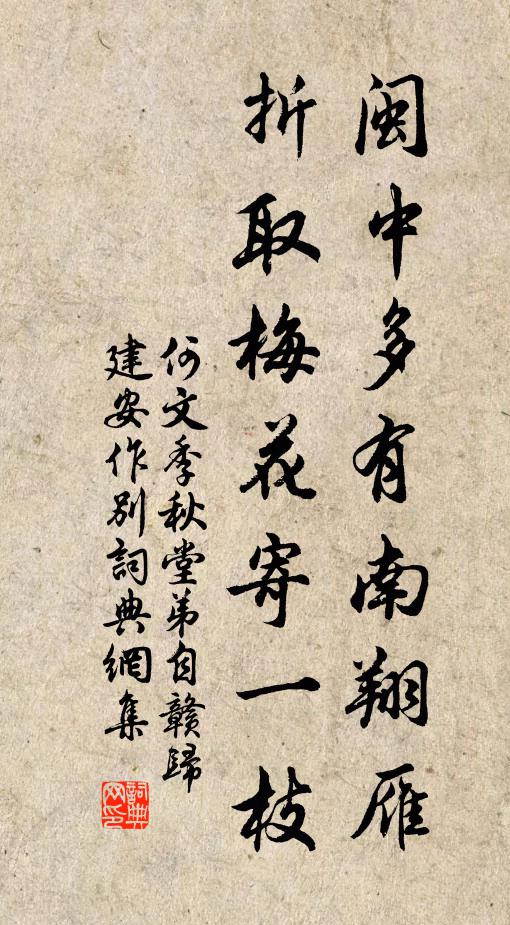 闽中多有南翔雁
折取梅花寄一枝
何文季秋堂弟自贛歸
建安作别詞典網集
詞典
网印